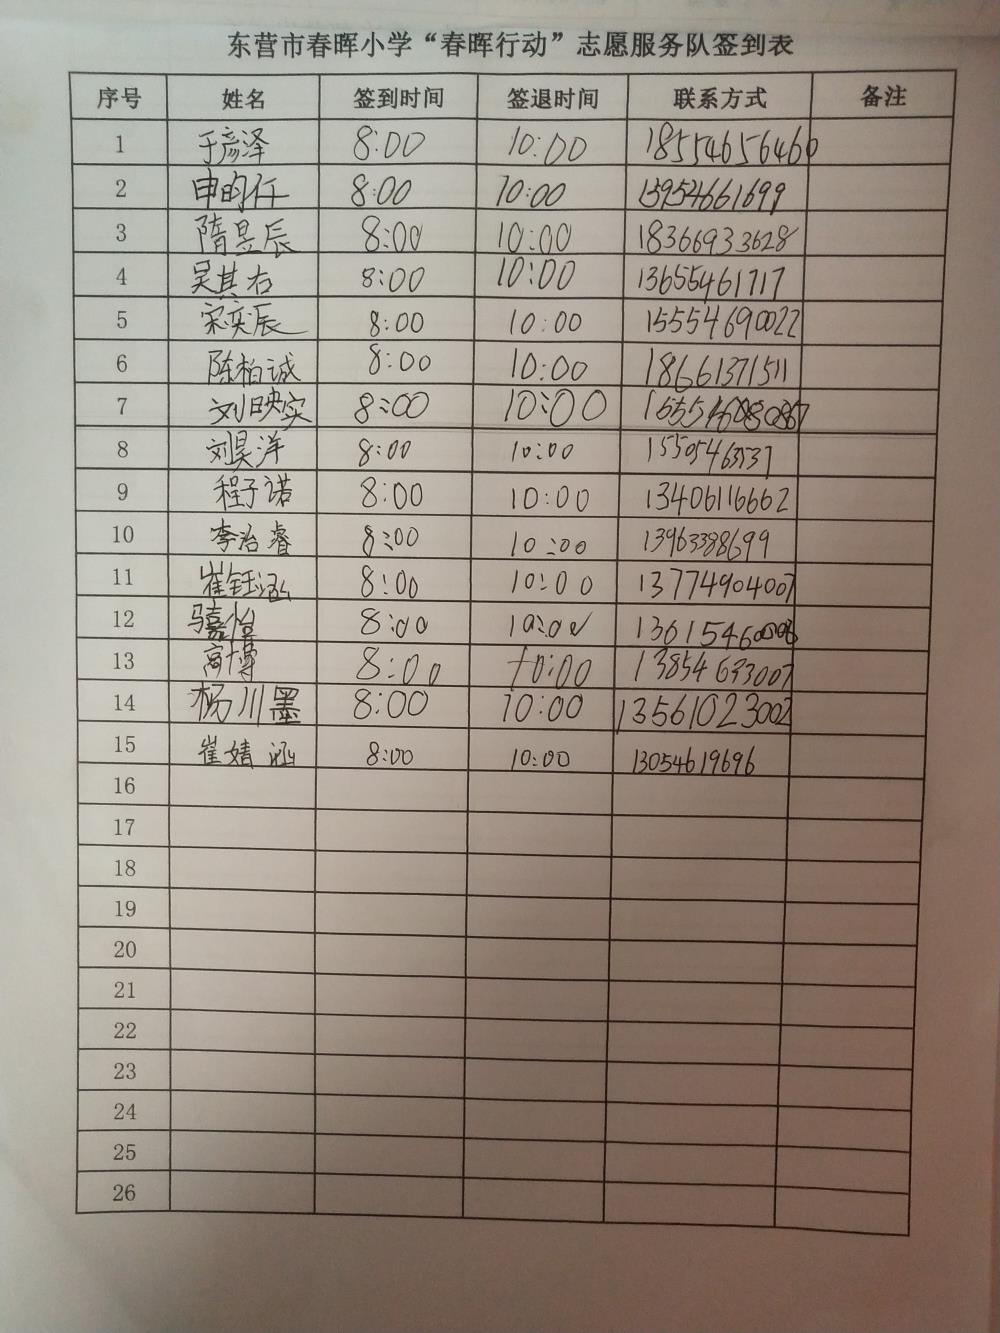 东营市春晖小学“春晖行动”志愿服务队签到表
序号 姓名 签到时间 签退时间 联系方式 备注
1 于彦泽 8:00 10:00 18554656460
2 8:00 10:00 13954661699
3 隋昱辰 8:00 10:00 18366933628
4 吴其右 8:00 10:00 13655461717
5 宋奕辰 8:00 10:00 15554690022
6 陈柏诚 8:00 10:00 18661371511
7 刘映实 8:00 10:00
8 刘昊洋 8:00 10:00 15505463737
9 程子诺 8:00 10:00 13406116662
10 李治睿 8:00 10:00 13963388699
11 崔钰泓 8:00 10:00 13774904007
12 骆嘉怡 8:00 10:00
13 高博 8:00 10:00 13854633007
14 杨川墨 8:00 10:00 13561023002
15 崔婧涵 8:00 10:00 13054619696
16
17
18
19
20
21
22
23
24
25
26